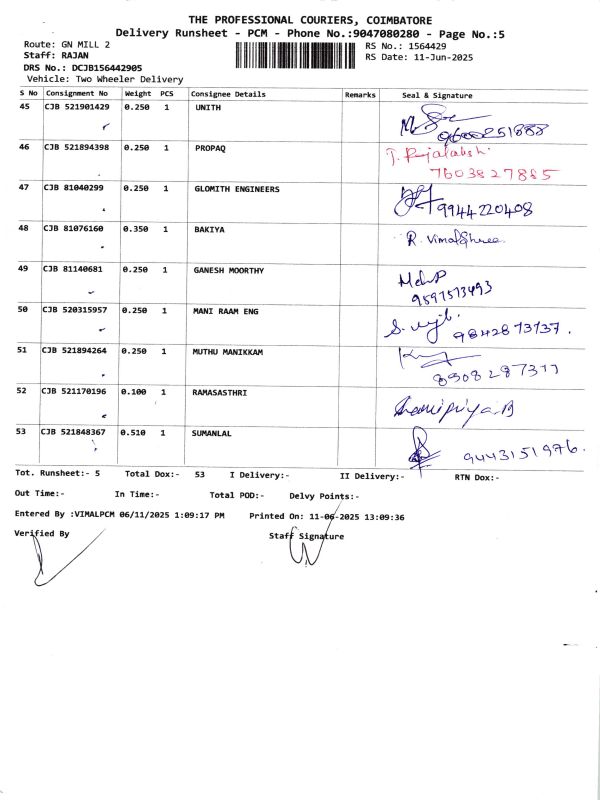 THE PROFESSIONAL COURIERS, COIMBATORE
Delivery Runsheet - PCM - Phone No.:9047080280 - Page No.:5
Route: GN MILL 2
RS No.: 1564429
Staff: RAJAN
RS Date: 11-Jun-2025
DRS No.: DCJB156442905
Vehicle: Two Wheeler Delivery
S No Consignment No Weight PCS Consignee Details Remarks Seal & Signature
45 CJB 521901429 0.250 1 UNITH
46 CJB 521894398 0.250 1 PROPAQ
7603827885
47 CJB 81040299 0.250 1 GLOMITH ENGINEERS
9944220408
48 CJB 81076160 0.350 1 BAKIYA
R. Vimal
49 CJB 81140681 0.250 1 GANESH MOORTHY
9597573493
50 CJB 520315957 0.250 1 MANI RAAM ENG
9842873737.
51 CJB 521894264 0.250 1 MUTHU MANIKKAM
52 CJB 521170196 0.100 1 RAMASASTHRI
53 CJB 521848367 0.510 1 SUMANLAL
9443151976.
Tot. Runsheet:- 5 Total Dox:- 53 I Delivery:- II Delivery:- RTN Dox:-
Out Time:- In Time:- Total POD:- Delvy Points:-
Entered By :VIMALPCM 06/11/2025 1:09:17 PM Printed On: 11-06-2025 13:09:36
Verified By Staff Signature